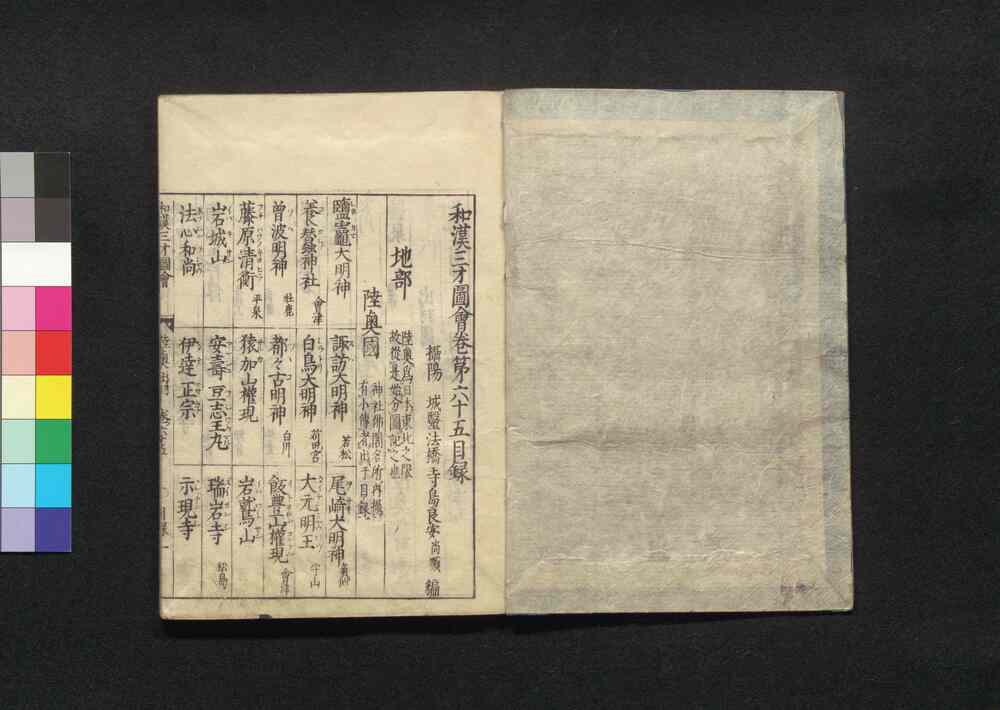 和漢三才圖會卷第六十五目録
攝陽 城醫法橋寺島良安尚順 編
地部
陸奥爲日本東北之限
故從是始分圖記之也
陸奥國
神社佛閣名所再擧
有小傳者出于目録
鹽竈大明神
諏訪大明神 若松
尾崎大明神 氣仙
養蠶神社 會津
白鳥大明神 苅田宮
大元明王
曽波明神 牡鹿
都々古明神 白川
飯豊山權現 會津
藤原清衡 平泉
猿加山權現
岩鷲山
岩城山
安壽 豆志王丸
瑞岩寺 松島
法心和尚
伊達正宗
示現寺
和漢三才圖會